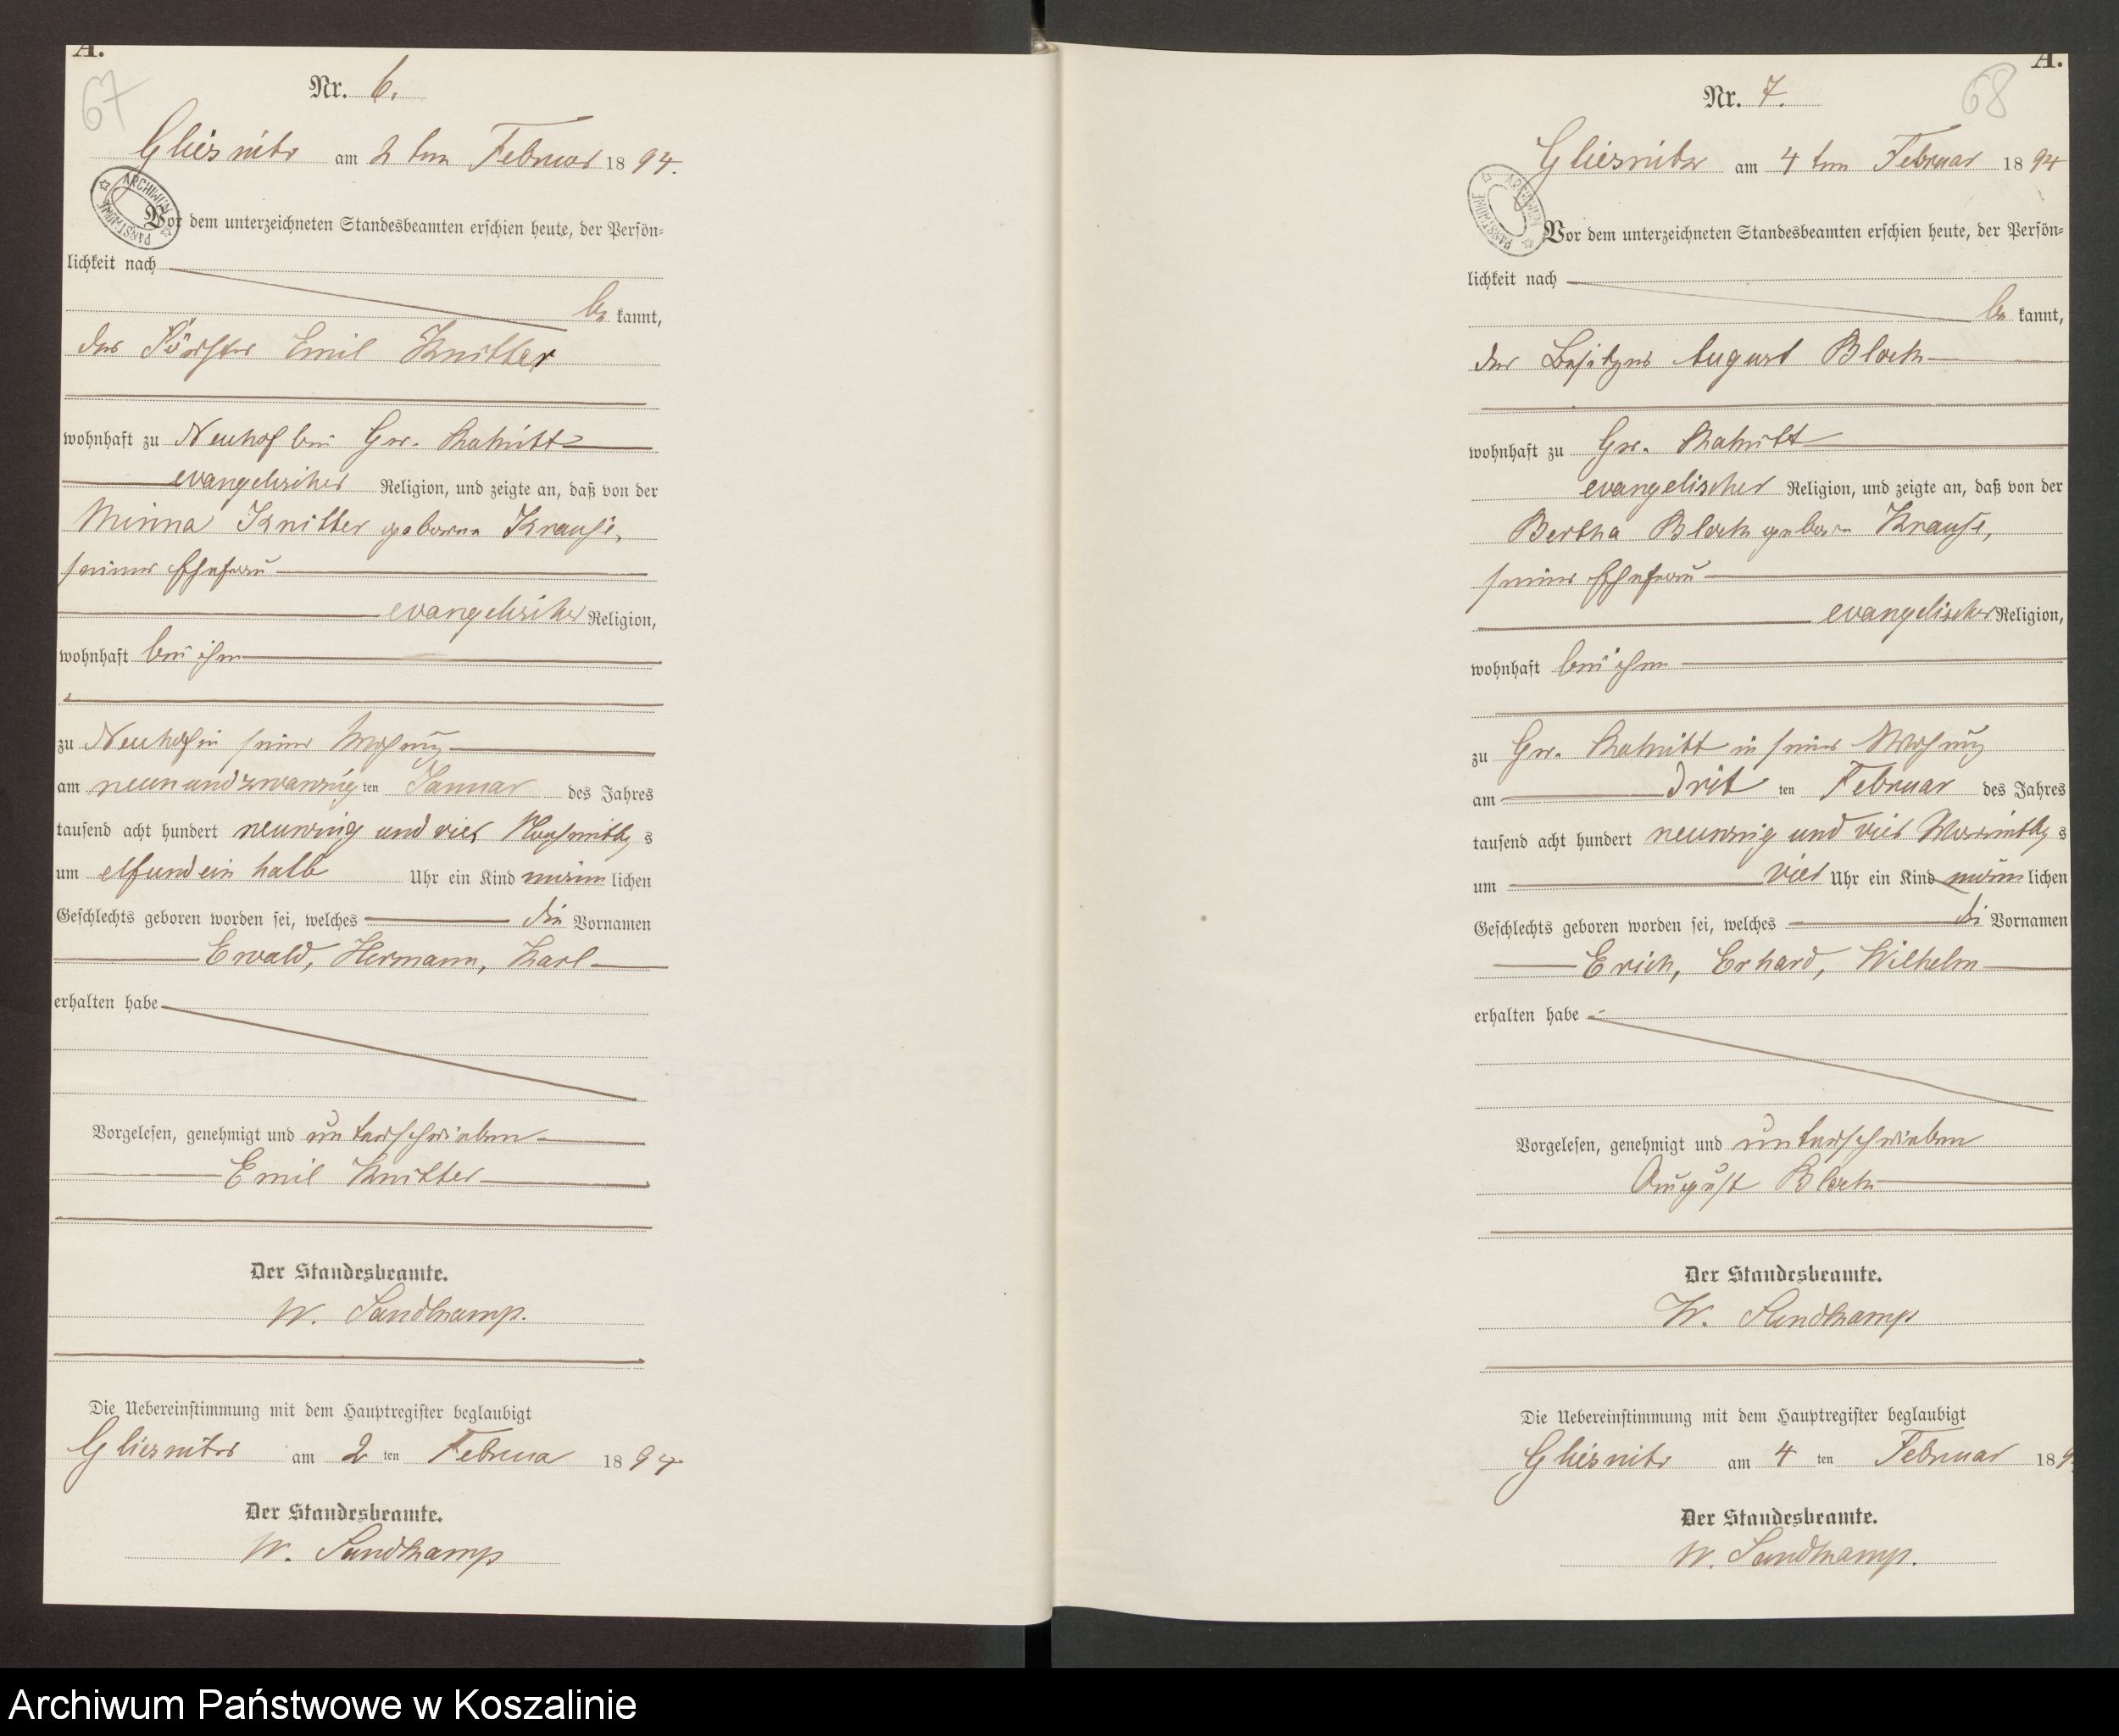 A.
67
Nr. 6.
Gliesnitz am 2 ten Februar 1894.
ARCHIWUM PAŃSTWOWE
Vor dem unterzeichneten Standesbeamten erschien heute, der Persön-
lichkeit nach
be kannt,
der Förster Emil Knitter
wohnhaft zu Neuhof bei Gr.
evangelischer Religion, und zeigte an, daß von der
Minna Knitter geborene Krause,
seiner Ehefrau
evangelischer Religion,
wohnhaft bei ihm
zu Neuhof in seiner Wohnung
am neunundzwanzig ten Januar des Jahres
tausend acht hundert neunzig und vier Nachmittag s
um elfundein halb Uhr ein Kind männ lichen
Geschlechts geboren worden sei, welches die Vornamen
Ewald, Hermann, Karl
erhalten habe
Vorgelesen, genehmigt und unterschrieben
Emil Knitter
Der Standesbeamte.
W. Sandkamp.
Die Uebereinstimmung mit dem Hauptregister beglaubigt
Gliesnitz am 2 ten Februar 1894
Der Standesbeamte.
W. Sandkamp
A.
68
Nr. 7.
Gliesnitz am 4 ten Februar 1894
ARCHIWUM PAŃSTWOWE
Vor dem unterzeichneten Standesbeamten erschien heute, der Persön-
lichkeit nach
be kannt,
der Besitzer August Block
wohnhaft zu Gr.
evangelischer Religion, und zeigte an, daß von der
Bertha Block geborne Krause,
seiner Ehefrau
evangelischer Religion,
wohnhaft bei ihm
zu Gr. in seiner Wohnung
am drit ten Februar des Jahres
tausend acht hundert neunzig und vier Vormittag s
um vier Uhr ein Kind männ lichen
Geschlechts geboren worden sei, welches die Vornamen
Erich, Erhard, Wilhelm
erhalten habe
Vorgelesen, genehmigt und unterschrieben
August Block
Der Standesbeamte.
W. Sandkamp
Die Uebereinstimmung mit dem Hauptregister beglaubigt
Gliesnitz am 4 ten Februar 189
Der Standesbeamte.
W. Sandkamp.
Archiwum Państwowe w Koszalinie